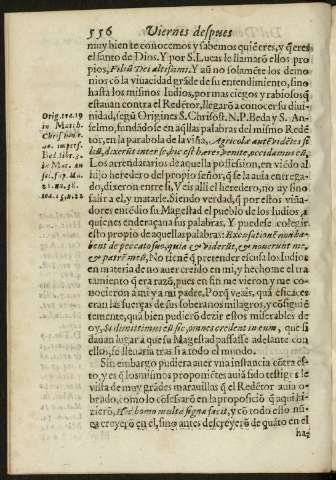 556 Viernes despues
muy bien te conocemos y sabemos quiẽ eres, y q̃ eres
el santo de Dios. Y por S. Lucas le llamarõ ellos pro
pios, Filiũ Dei altissimi. Y aũ no solamẽte los demo
nios cõ la viuacidad grãde de su entendimiento, sino
hasta los mismos Iudios, por mas ciegos y rabiosos q̃
estauan contra el Redẽtor, llegarõ a conocer su diui-
nidad, segũ Origines S. Chrisost. N. P. Beda y S. An-
selmo, fundãdose en aq̃llas palabras del mismo Redẽ
tor, en la parabola de la viña, Agricolæ autẽ vidẽtes fi
liũ, dixerũt intra se, hic est hæres, venite, occidamus eũ.
Los arrendatarios de aquella possession, en viẽdo al
hijo heredero de su propio señor, q̃ se la auia entrega-
do, dixeron entre si, Veis alli el heredero, no ay sino
salir a el, y matarle. Siendo verdad, q̃ por estos viña-
dores entẽdio su Magestad el pueblo de los Iudios, a
quienes endereçaua sus palabras. Y puedese colegir
esto propio de aquellas palabras: Excusationẽ non ha-
bent de peccato suo, quia & viderũt, & non crunt me,
& patrẽ meũ, No tienẽ q̃ pretender escusa los Iudios
en materia de no auer creido en mi, y hechome el tra
tamiento q̃ era razõ, pues en fin me vieron y me co-
nocieron a mi y a mi padre. Porq̃ vezes, quã eficazes
eran las fuerças de sus soberanos milagros, y cõsiguiẽ
temente, quã bien pudierõ dezir estos miserables de
oy, Si dimittimus eũ sic, omnes credent in eum, que si
dauan lugar a que su Magestad passasse adelante con
ellos, se lleuaria tras si a todo el mundo.
Sin embargo pudiera auer vna instancia cõtra es-
to, y es q̃ los mismos proponiẽtes auiã sido testigos de
vista de muy grãdes marauillas q̃ el Redẽtor auia o-
brado, como lo cõfessarõ en la proposiciõ q̃ aqui hi-
zierõ, Hic homo multa signa facit, y cõ todo esso nũ-
ca creyerõ en el, sino antes descreyerõ de quãto en el
ha;
Orig. tra. 19
in Math.
Chrisostom.